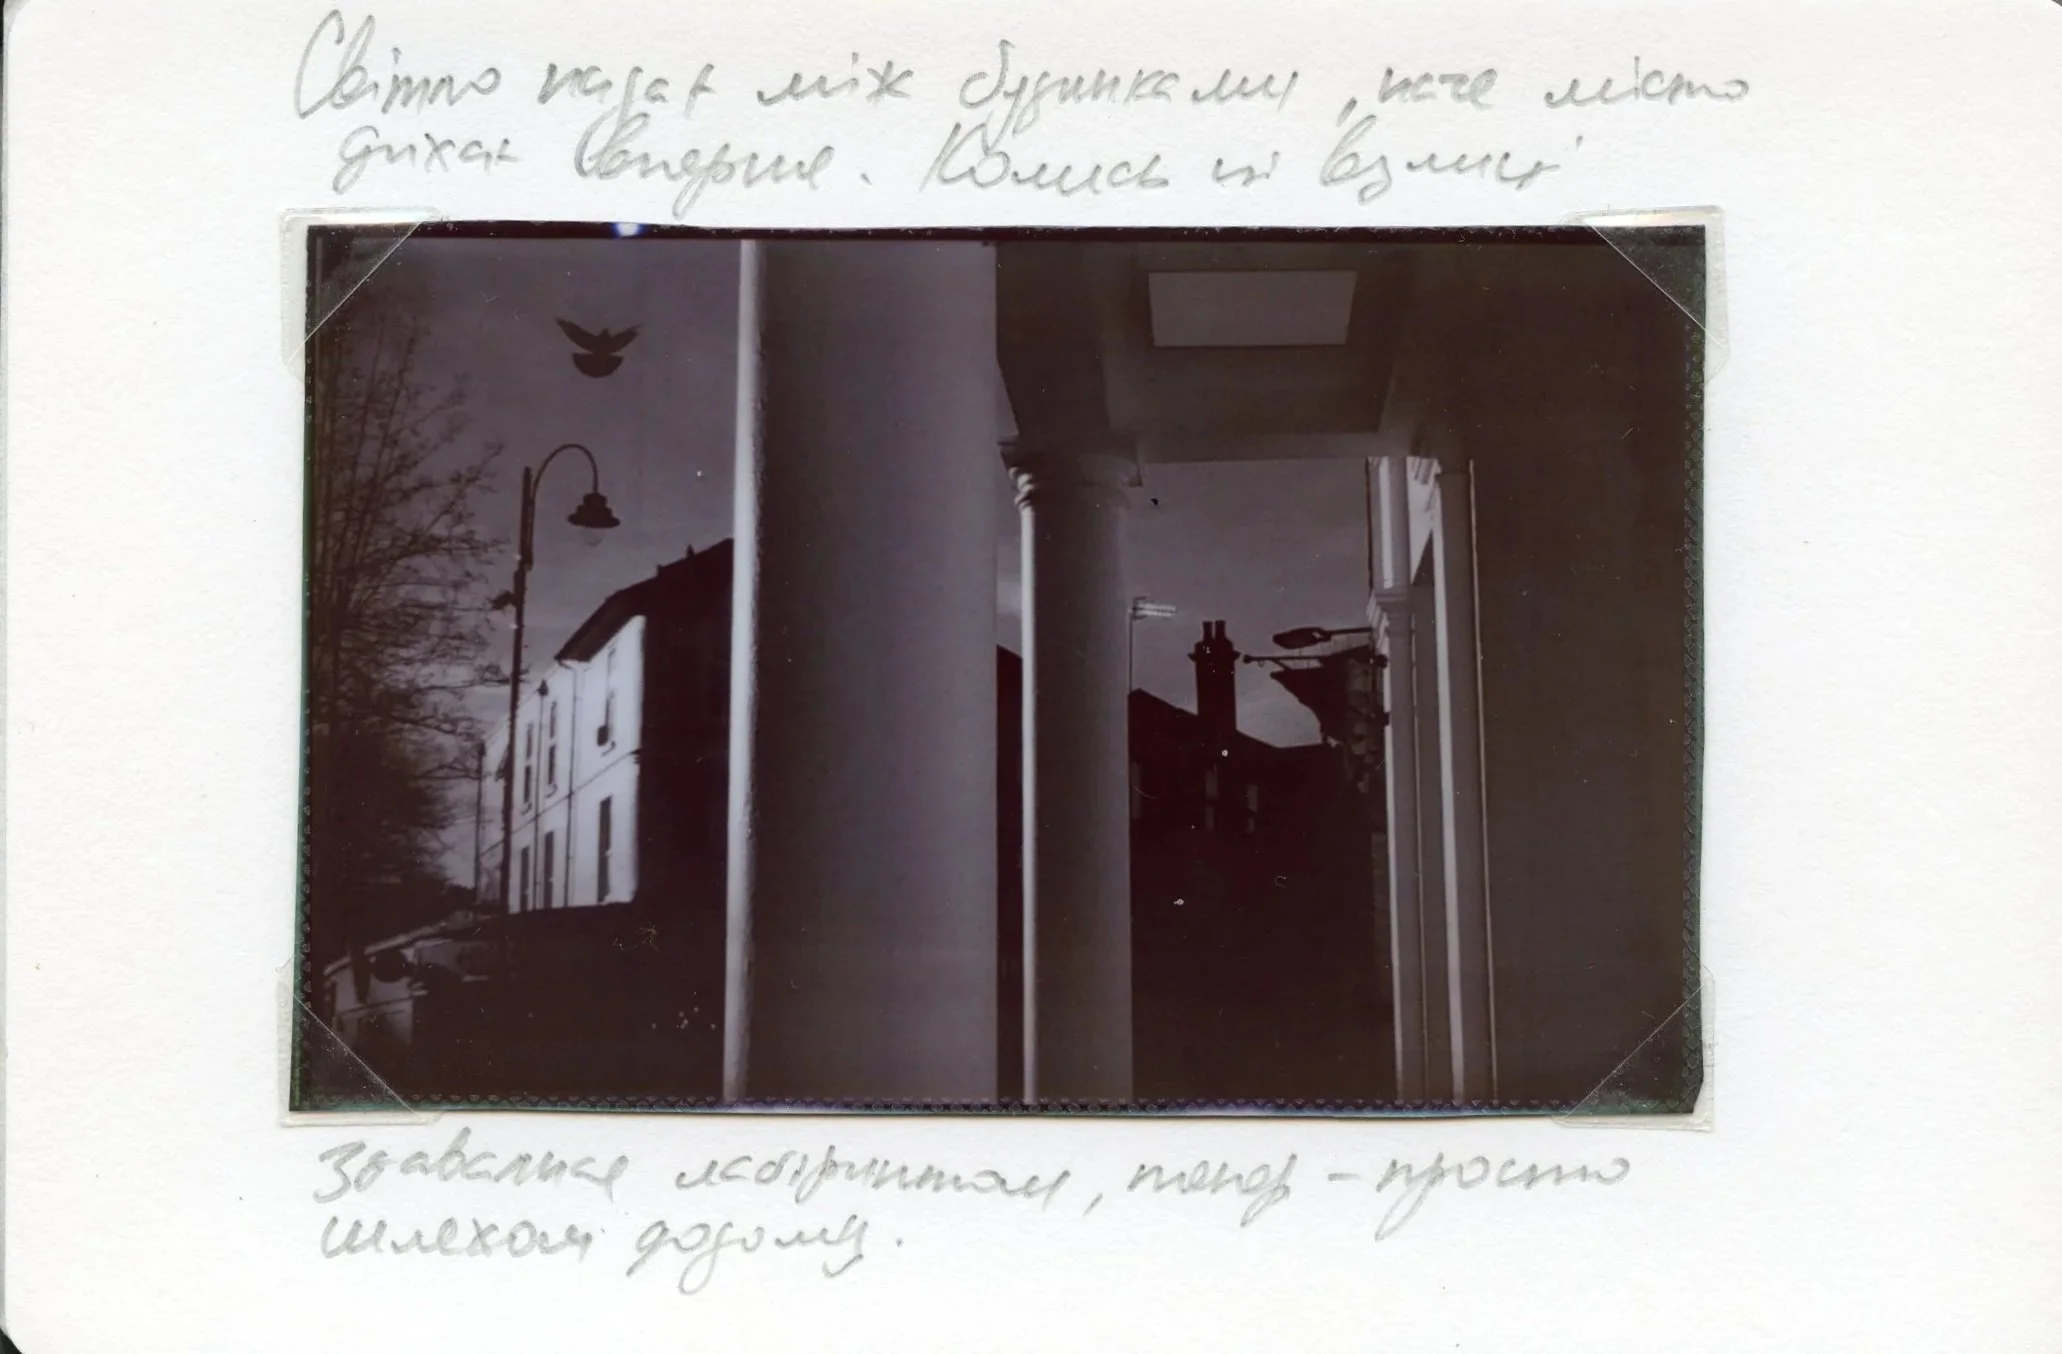 Світло падає між будинками, наче місто
дихає вперше. Колись ці вулиці
здавалися лабіринтом, тепер – просто
шляхом додому.